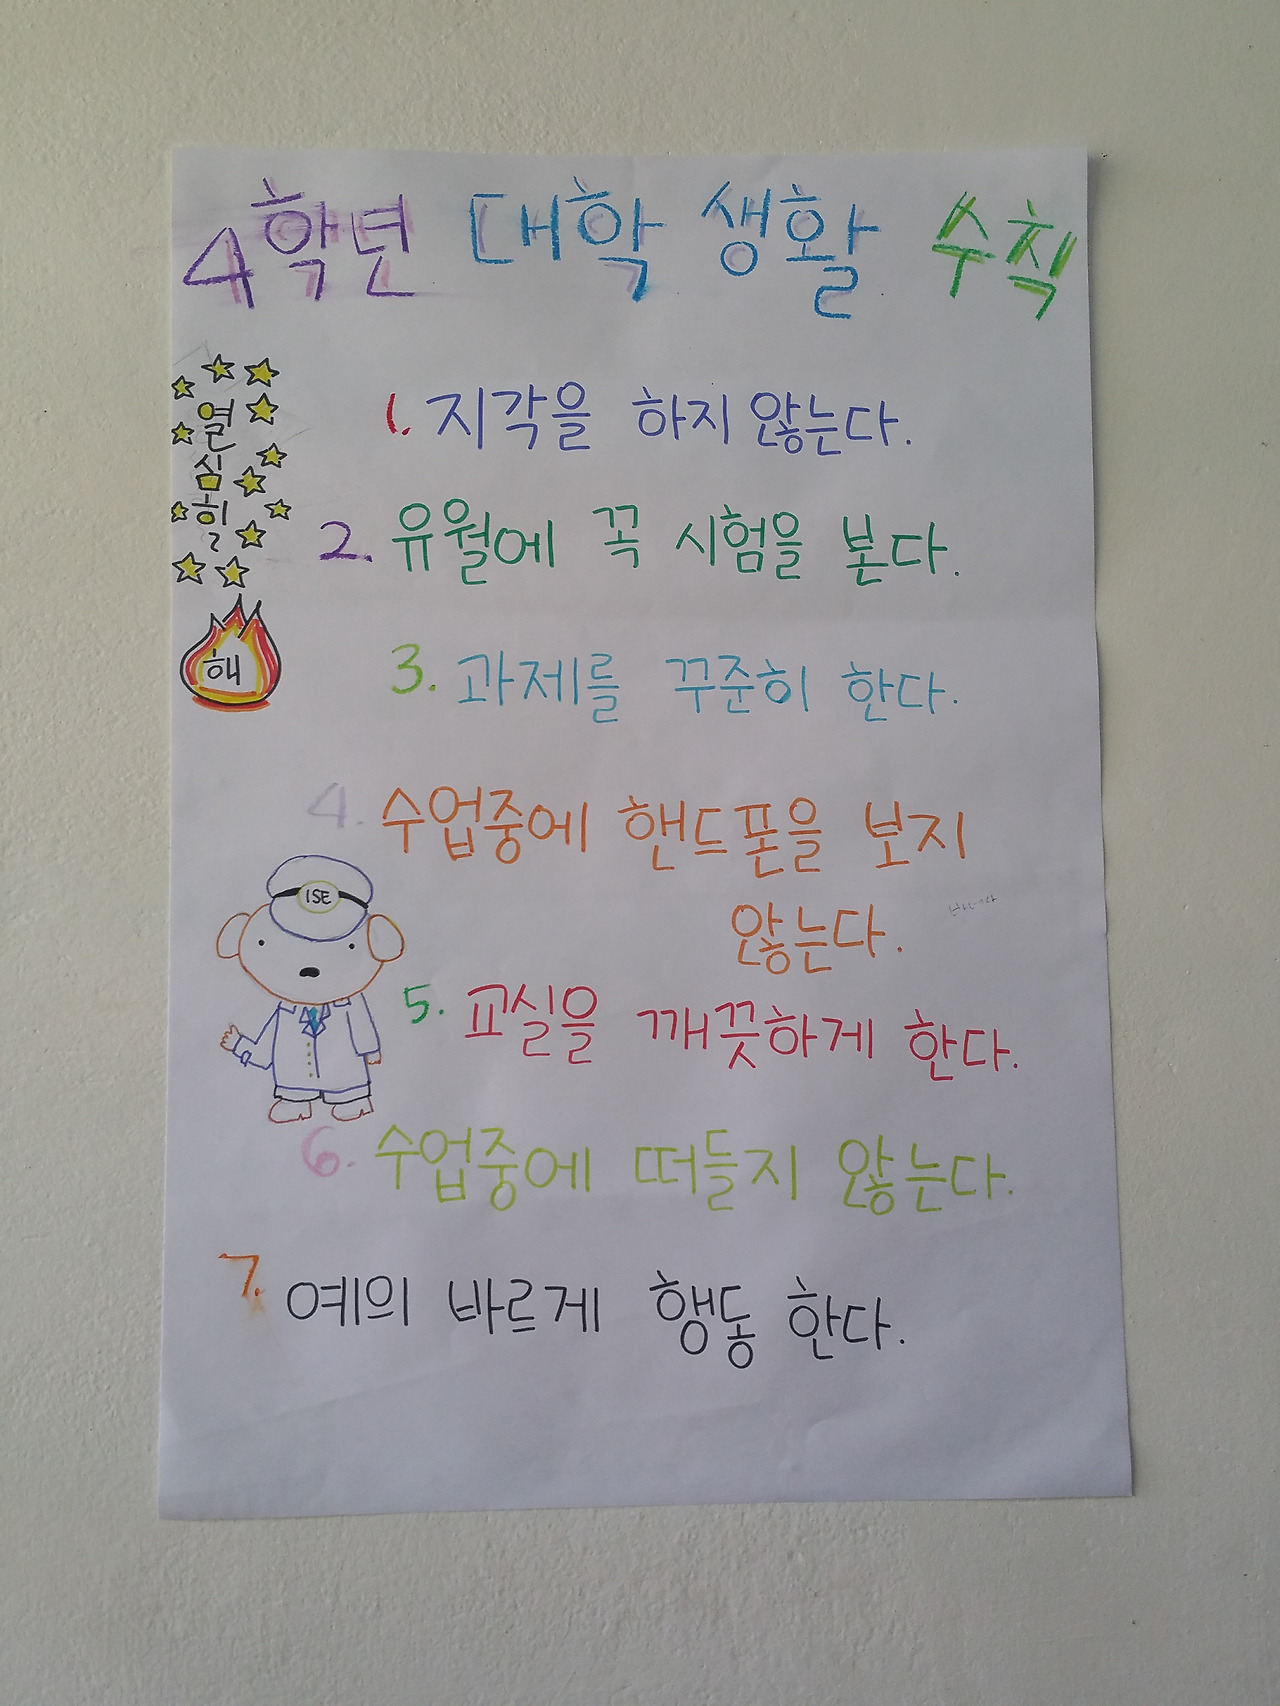 4학년 대학 생활 수칙
열
심
히
해
1. 지각을 하지 않는다.
2. 유월에 꼭 시험을 본다.
3. 과제를 꾸준히 한다.
4. 수업중에 핸드폰을 보지
않는다.
ISE
5. 교실을 깨끗하게 한다.
6. 수업중에 떠들지 않는다.
7. 예의 바르게 행동 한다.